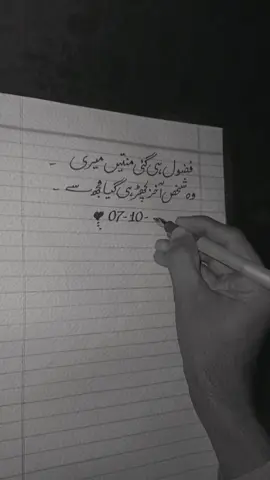 فضول ہی گئی منتیں میری ۔
وہ شخص آخر بچھڑ ہی گیا مجھ سے ۔
07-10-